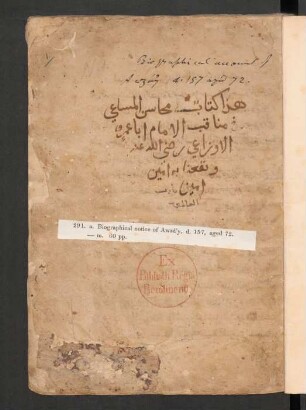 Biographical account of
Awzáy. d. 157 aged 72.
هذا كتاب محاسن المساعي
في مناقب الامام ابا عمرو
الاوزاعي رضي الله عنه
ونفعنا به امين
امين يا رب
العالمين
291. a. Biographical notice of Awzá'y, d. 157, aged 72.
— m. 80 pp.
Ex
Biblioth. Regia
Berolinensi